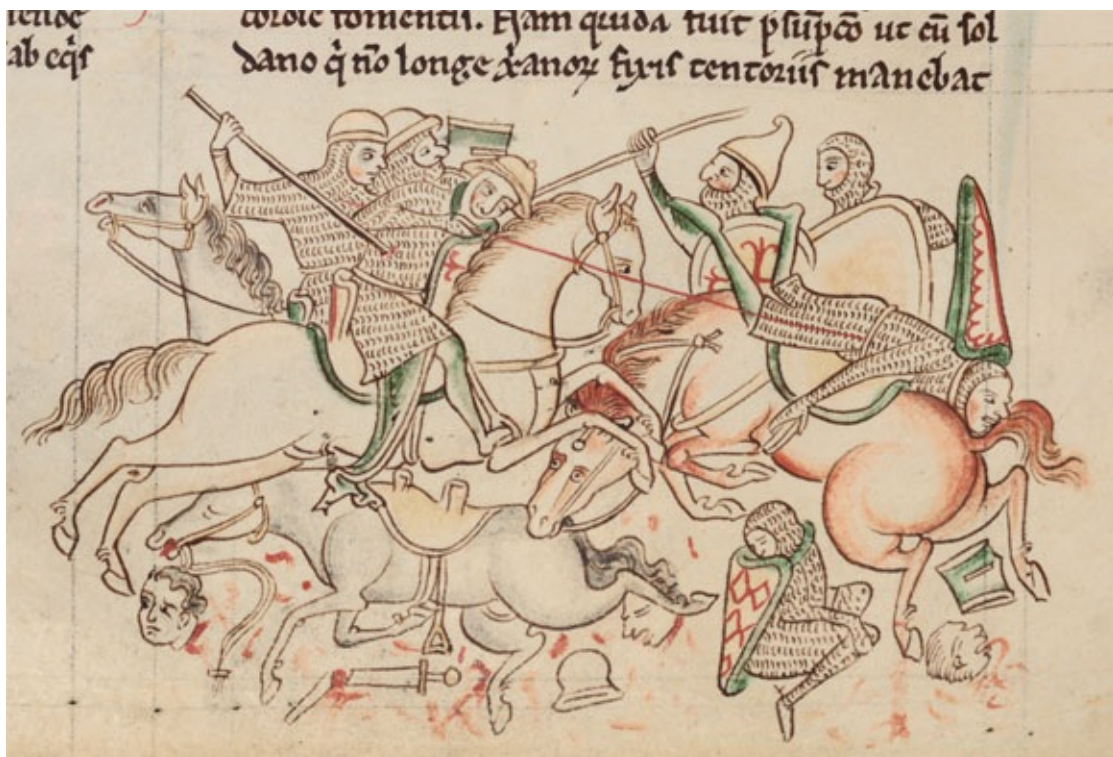 ab eq̇s
cordie fomentis. Nam quidā fuit p̄sūpcō ut cū sol
dano q̇ nō longe x̄anoꝝ fixis tentoriis manebat